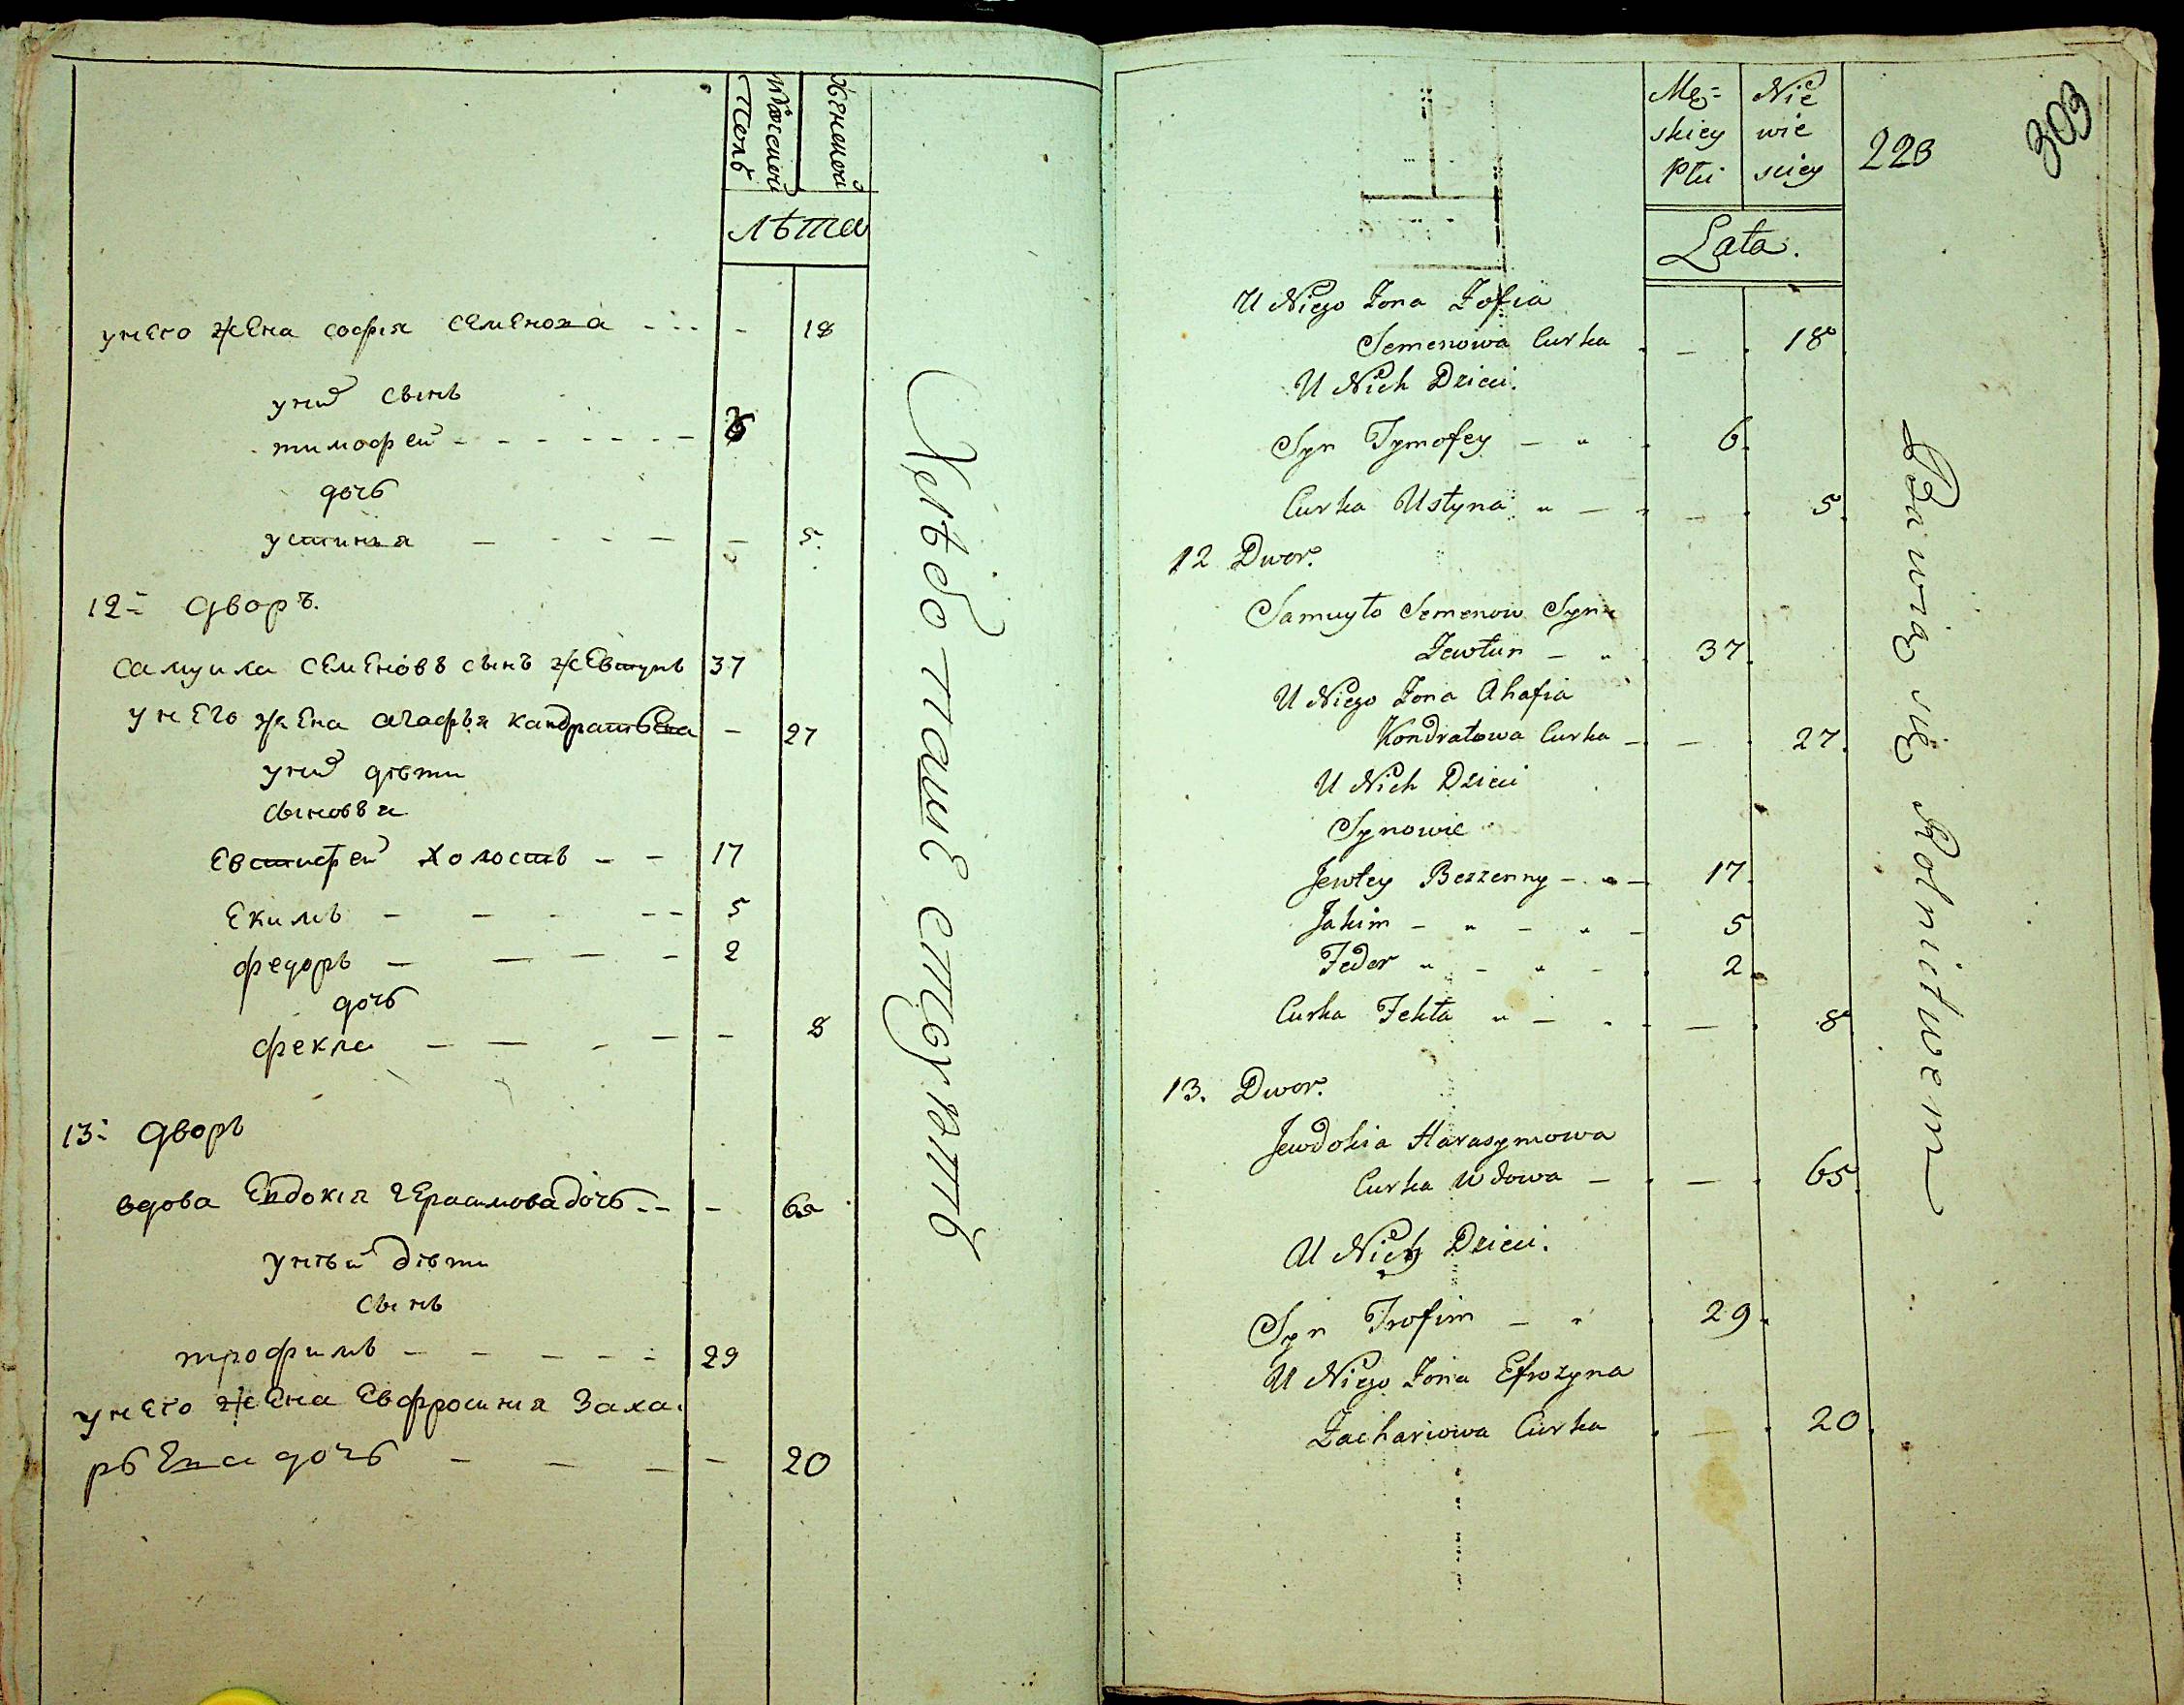 Мужеской Полъ
Женской
лѣта
у него жена софія семенова - - - 18
у ниⷯ сынъ
тимофей - - - - - - - 6
дочь
устинья - - - - - 5.
12й дворъ.
самуила семеновъ сынъ жевтунъ 37
у него жена агафья кандратьева - 27
у ниⷯ дѣти
сыновья
евтифей холостъ - - 17
екимъ - - - - - 5
федоръ - - - - 2
дочь
фекла - - - - - 8
13й дворъ
вдова Евдокія герасимова дочь - - - 65
у нѣй дѣти
сынъ
трофимъ - - - - - 29
у него жена Евфросинія Заха-
рьева дочь - - - - 20
Хлѣбопашествуютъ
Mę=
skiey
Płci
Nie
wie
sciey
223
309
Lata.
U Niego Żona Zofia
Semenowa Curka - 18
U Nich Dzieci.
Syn Tymofey - " 6.
Curka Ustyna " - - 5.
12 Dwor.
Samuyło Semenow Syn
Żewtun - " 37.
U Niego Żona Ahafia
Kondratowa Curka - - 27.
U Nich Dzieci
Synowie
Jewtey Bezzenny - " - 17.
Jakim - " - " - 5
Fedor " - " - 2.
Curka Fekła " - - - 8
13. Dwor.
Jewdokia Harasymowa
Curka Wdowa - - 65.
U Niey Dzieci.
Syn Trofim - " 29.
U Niego Żona Efrozyna
Zachariowa Curka - 20.
Bawią się Rolnictwem